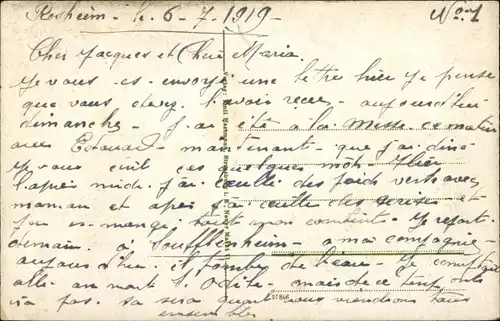 Rosheim - le 6-7-1919-
No 1
Cher Jacques et Chère Maria.
Je vous es envoyé une lettre hier je pense
que vous devez l'avoir reçu - aujourd'hui
dimanche - J'ai été à la Messe ce matin
avec Edouard - maintenant que j'ai dîné
je vous écrit ces quelques mots. Hier
l'après midi j'ai cueilli des poids verts avec
maman et après j'ai cueilli des cerises et
j'en mangé, tout mon content. Je repart
demain à Soufflenheim - a ma compagnie -
aujourd'hui il tombe de l'eau - Je comptais
allé au mont St Odile - mais de ce temps
va pas. sa sera quant nous viendrons tous
ensembles